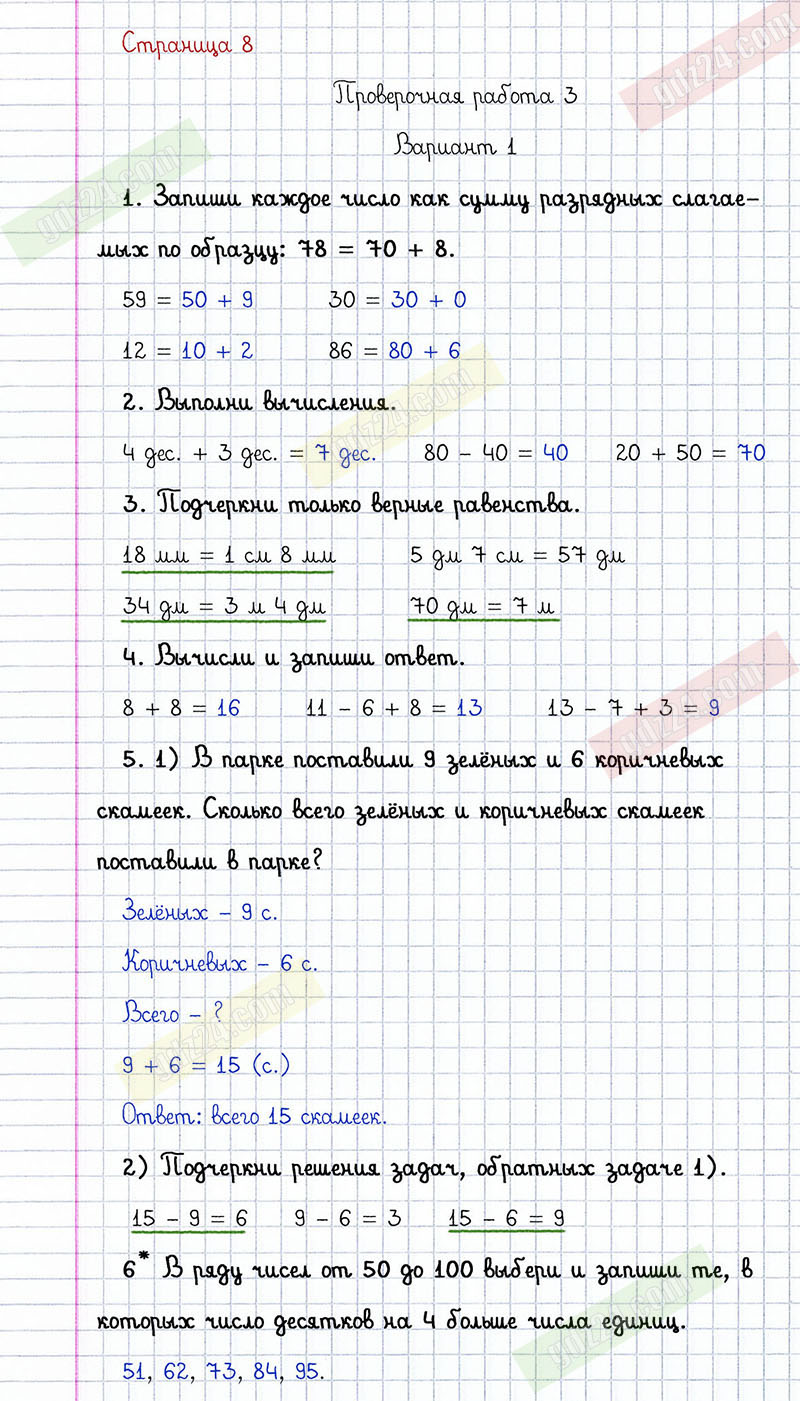 Страница 8
gdz24.com
Проверочная работа 3
Вариант 1
gdz24.com
1. Запиши каждое число как сумму разрядных слагае-
мых по образцу: 78 = 70 + 8.
59 = 50 + 9 30 = 30 + 0
12 = 10 + 2 86 = 80 + 6
2. Выполни вычисления.
gdz24.com
4 дес. + 3 дес. = 7 дес. 80 - 40 = 40 20 + 50 = 70
3. Подчеркни только верные равенства.
18 мм = 1 см 8 мм 5 дм 7 см = 57 дм
34 дм = 3 м 4 дм 70 дм = 7 м
4. Вычисли и запиши ответ.
8 + 8 = 16 11 - 6 + 8 = 13 13 - 7 + 3 = 9
gdz24.com
5. 1) В парке поставили 9 зелёных и 6 коричневых
скамеек. Сколько всего зелёных и коричневых скамеек
поставили в парке?
Зелёных - 9 с.
Коричневых - 6 с.
Всего - ?
gdz24.com
9 + 6 = 15 (с.)
Ответ: всего 15 скамеек.
2) Подчеркни решения задач, обратных задаче 1).
15 - 9 = 6 9 - 6 = 3 15 - 6 = 9
6* В ряду чисел от 50 до 100 выбери и запиши те, в
которых число десятков на 4 больше числа единиц.
gdz24.com
51, 62, 73, 84, 95.